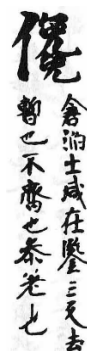 儳
倉泊士咸在鑒三反去
暫也不齊也叅差也